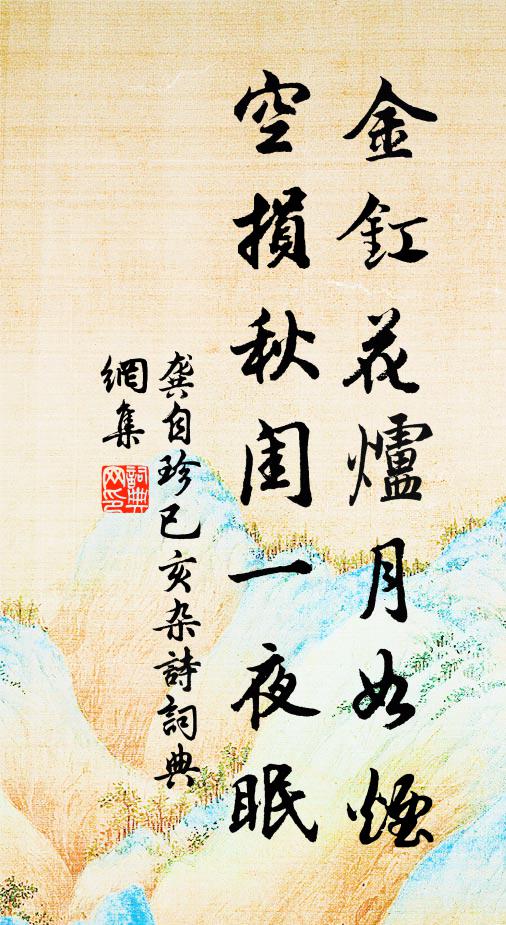 金釭花爐月如煙
空損秋閨一夜眠
龔自珍已亥杂詩詞典
網集
詞典網印